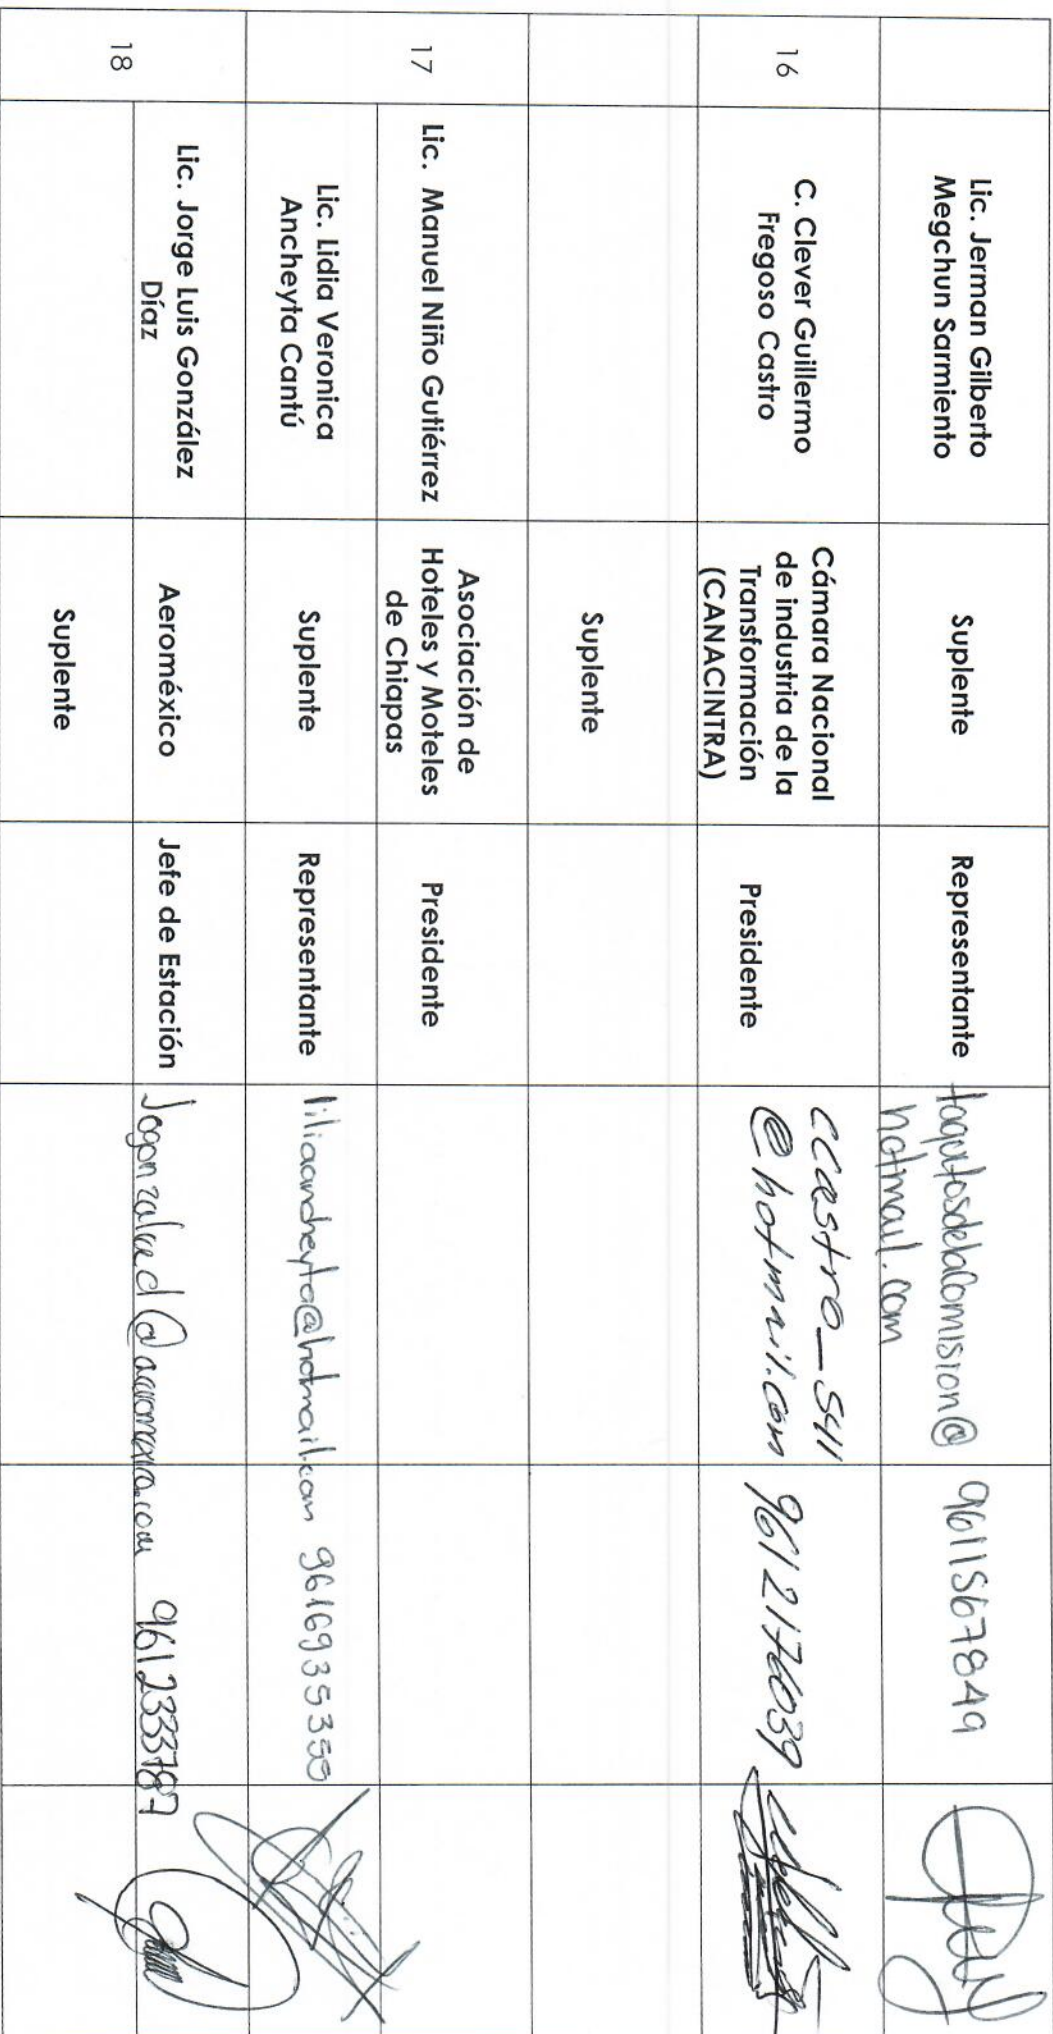 Lic. Jerman Gilberto
Megchun Sarmiento
Suplente
Representante
taquitosdelacomision@
hotmail.com
9611567849
16
C. Clever Guillermo
Fregoso Castro
Cámara Nacional
de industria de la
Transformación
(CANACINTRA)
Presidente
ccastro_5411
@hotmail.com
9612176039
Suplente
17
Lic. Manuel Niño Gutiérrez
Asociación de
Hoteles y Moteles
de Chiapas
Presidente
Lic. Lidia Veronica
Ancheyta Cantú
Suplente
Representante
liliaancheyta@hotmail.com
9616935355
18
Lic. Jorge Luis González
Díaz
Aeroméxico
Jefe de Estación
9612333787
Suplente